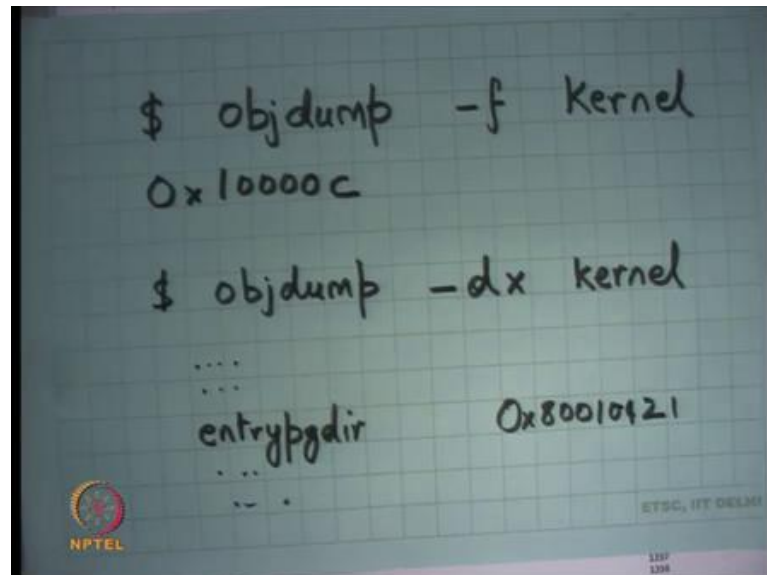 $ objdump -f kernel
0x10000c
$ objdump -dx kernel
....
...
entrypgdir 0x80010421
. ..
.. .
NPTEL
ETSC, IIT DELHI
1237
1238